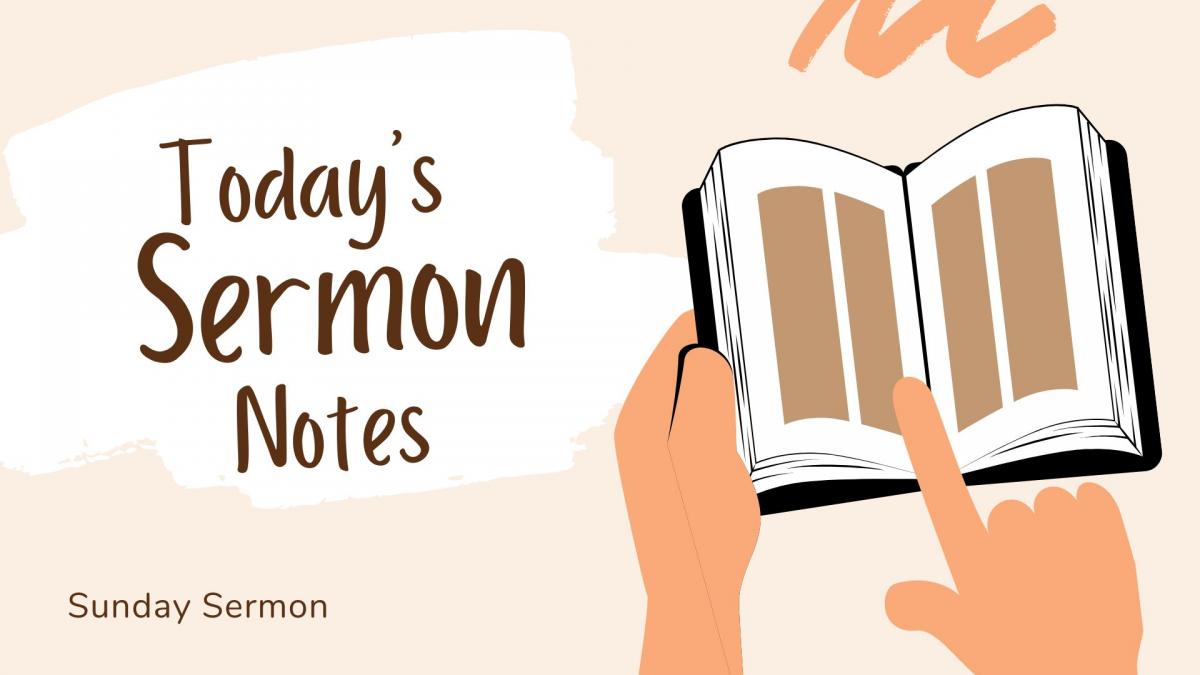 Today's
Sermon
Notes
Sunday Sermon